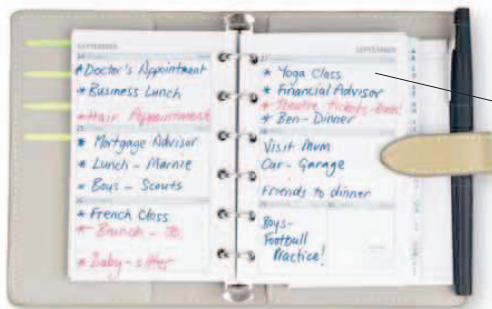 SEPTEMBER
24
* Doctor's Appointment
* Business Lunch
* Hair Appointment
25
* Mortgage Advisor
* Lunch - Marnie
* Boys - Scouts
26
* French Class
* Brunch - Jo.
* Baby-sitter
SEPTEMBER
27
* Yoga Class
* Financial Advisor
* Theatre tickets -
* Ben - Dinner
28
Visit Mum
Car - Garage
Friends to dinner
Boys -
Football
Practice!